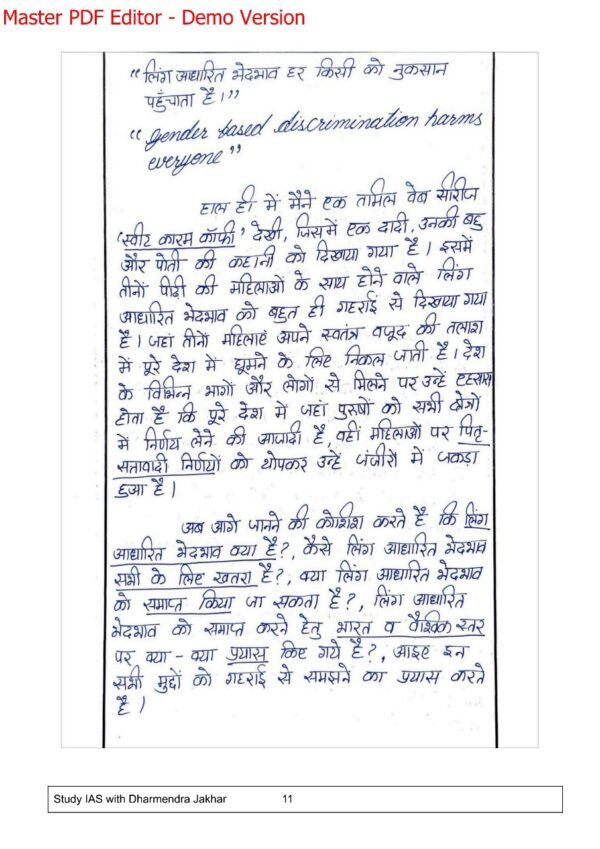 Master PDF Editor - Demo Version
“लिंग आधारित भेदभाव हर किसी को नुकसान
पहुँचाता है।”
“gender based discrimination harms
everyone”
हाल ही में मैने एक तामिल वेब सीरीज
‘स्वीट कारम कॉफी’ देखी, जिसमें एक दादी, उनकी बहु
और पोती की कहानी को दिखाया गया है। इसमें
तीनों पीढी की महिलाओं के साथ होने वाले लिंग
आधारित भेदभाव को बहुत ही गहराई से दिखाया गया
है। जहां तीनों महिलाएं अपने स्वतंत्र वजूद की तलाश
में पूरे देश में घूमने के लिए निकल जाती है। देश
के विभिन्न भागों और लोगों से मिलने पर उन्हें एहसास
होता है कि पूरे देश में जहां पुरुषों को सभी क्षेत्रों
में निर्णय लेने की आजादी है, वहीं महिलाओं पर पितृ-
सतावादी निर्णयों को थोपकर उन्हें जंजीरों में जकडा
हुआ है।
अब आगे जानने की कोशिश करते है कि लिंग
आधारित भेदभाव क्या है?, कैसे लिंग आधारित भेदभाव
सभी के लिए खतरा है?, क्या लिंग आधारित भेदभाव
को समाप्त किया जा सकता है?, लिंग आधारित
भेदभाव को समाप्त करने हेतु भारत व वैश्विक स्तर
पर क्या-क्या प्रयास किए गये है?, आइए इन
सभी मुद्दों को गहराई से समझने का प्रयास करते
है।
Study IAS with Dharmendra Jakhar 11